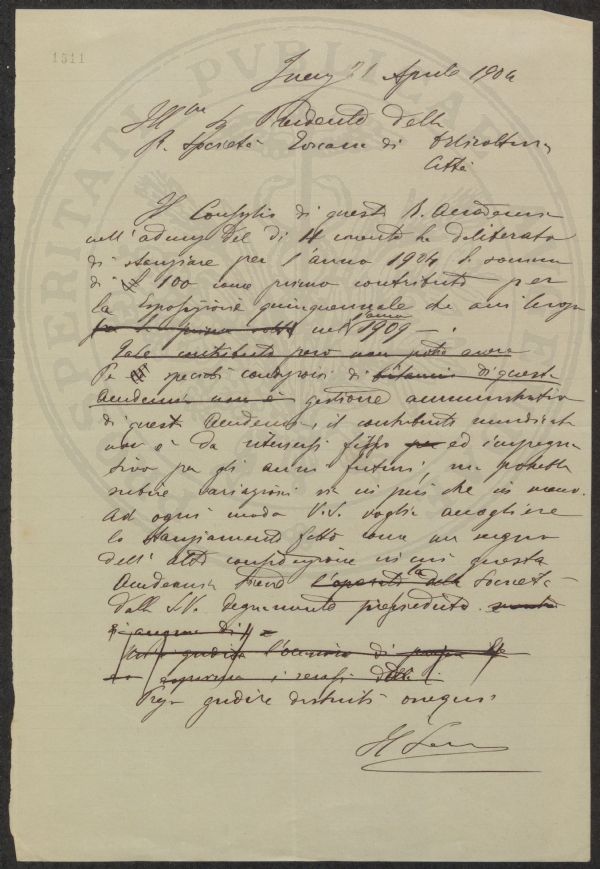 1511
PROSPERITATI PVBLICAE
21 Aprile 1904
Ill.mo Sig Presidente della
R. Società Toscana di Orticoltura
Città
Il Consiglio di questa R. Accademia
nell'adunza del dì 11 corrente ha deliberato
di stanziare per l'anno 1904 la somma
di £ 100 come primo contributo per
la Esposizione quinquennale che avrà luogo
per la prima volta nel 1909 - .
l'anno
Tale contributo però non potrà ancora
Per speciali condizioni di bilancio di questa
Accademia non è gestione amministrativa
di questa Accademia, il contributo
non è da ritenersi fisso per ed impegna
tivo per gli anni futuri, ma potrebbe
subire variazioni sia in più che in meno.
Ad ogni modo V.S. voglia accogliere
lo stanziamento fatto come un segno
dell'alta considerazione in cui questa
Accademia tiene l'operato della Società
la
dalla S.V. degnamente presieduta.
augura di
l'occasione di
i sensi della
Prego gradire distinti ossequi
Il